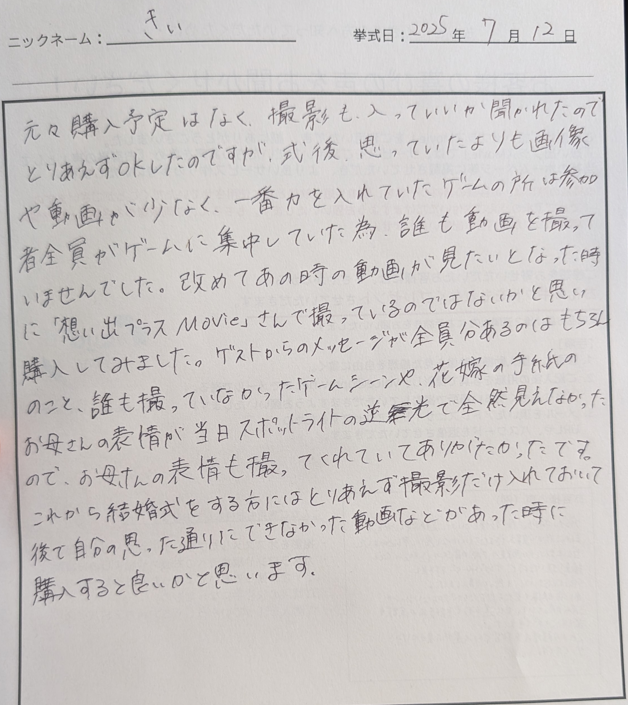 ニックネーム： きい 挙式日：2025年 7月12日
元々購入予定はなく、撮影も入っていいか聞かれたので
とりあえずOKしたのですが、式後、思っていたよりも画像
や動画が少なく、一番力を入れていたゲームの所は参加
者全員がゲームに集中していた為、誰も動画を撮って
いませんでした。改めてあの時の動画が見たいとなった時
に「想い出プラスMovie」さんで撮っているのではないかと思い
購入してみました。ゲストからのメッセージが全員分あるのはもちろん
のこと、誰も撮っていなかったゲームシーンや、花嫁の手紙の
お母さんの表情が当日スポットライトの逆光で全然見えなかった
ので、お母さんの表情も撮ってくれていてありがたかったです。
これから結婚式をする方にはとりあえず撮影だけ入れておいて
後で自分の思った通りにできなかった動画などがあった時に
購入すると良いかと思います。